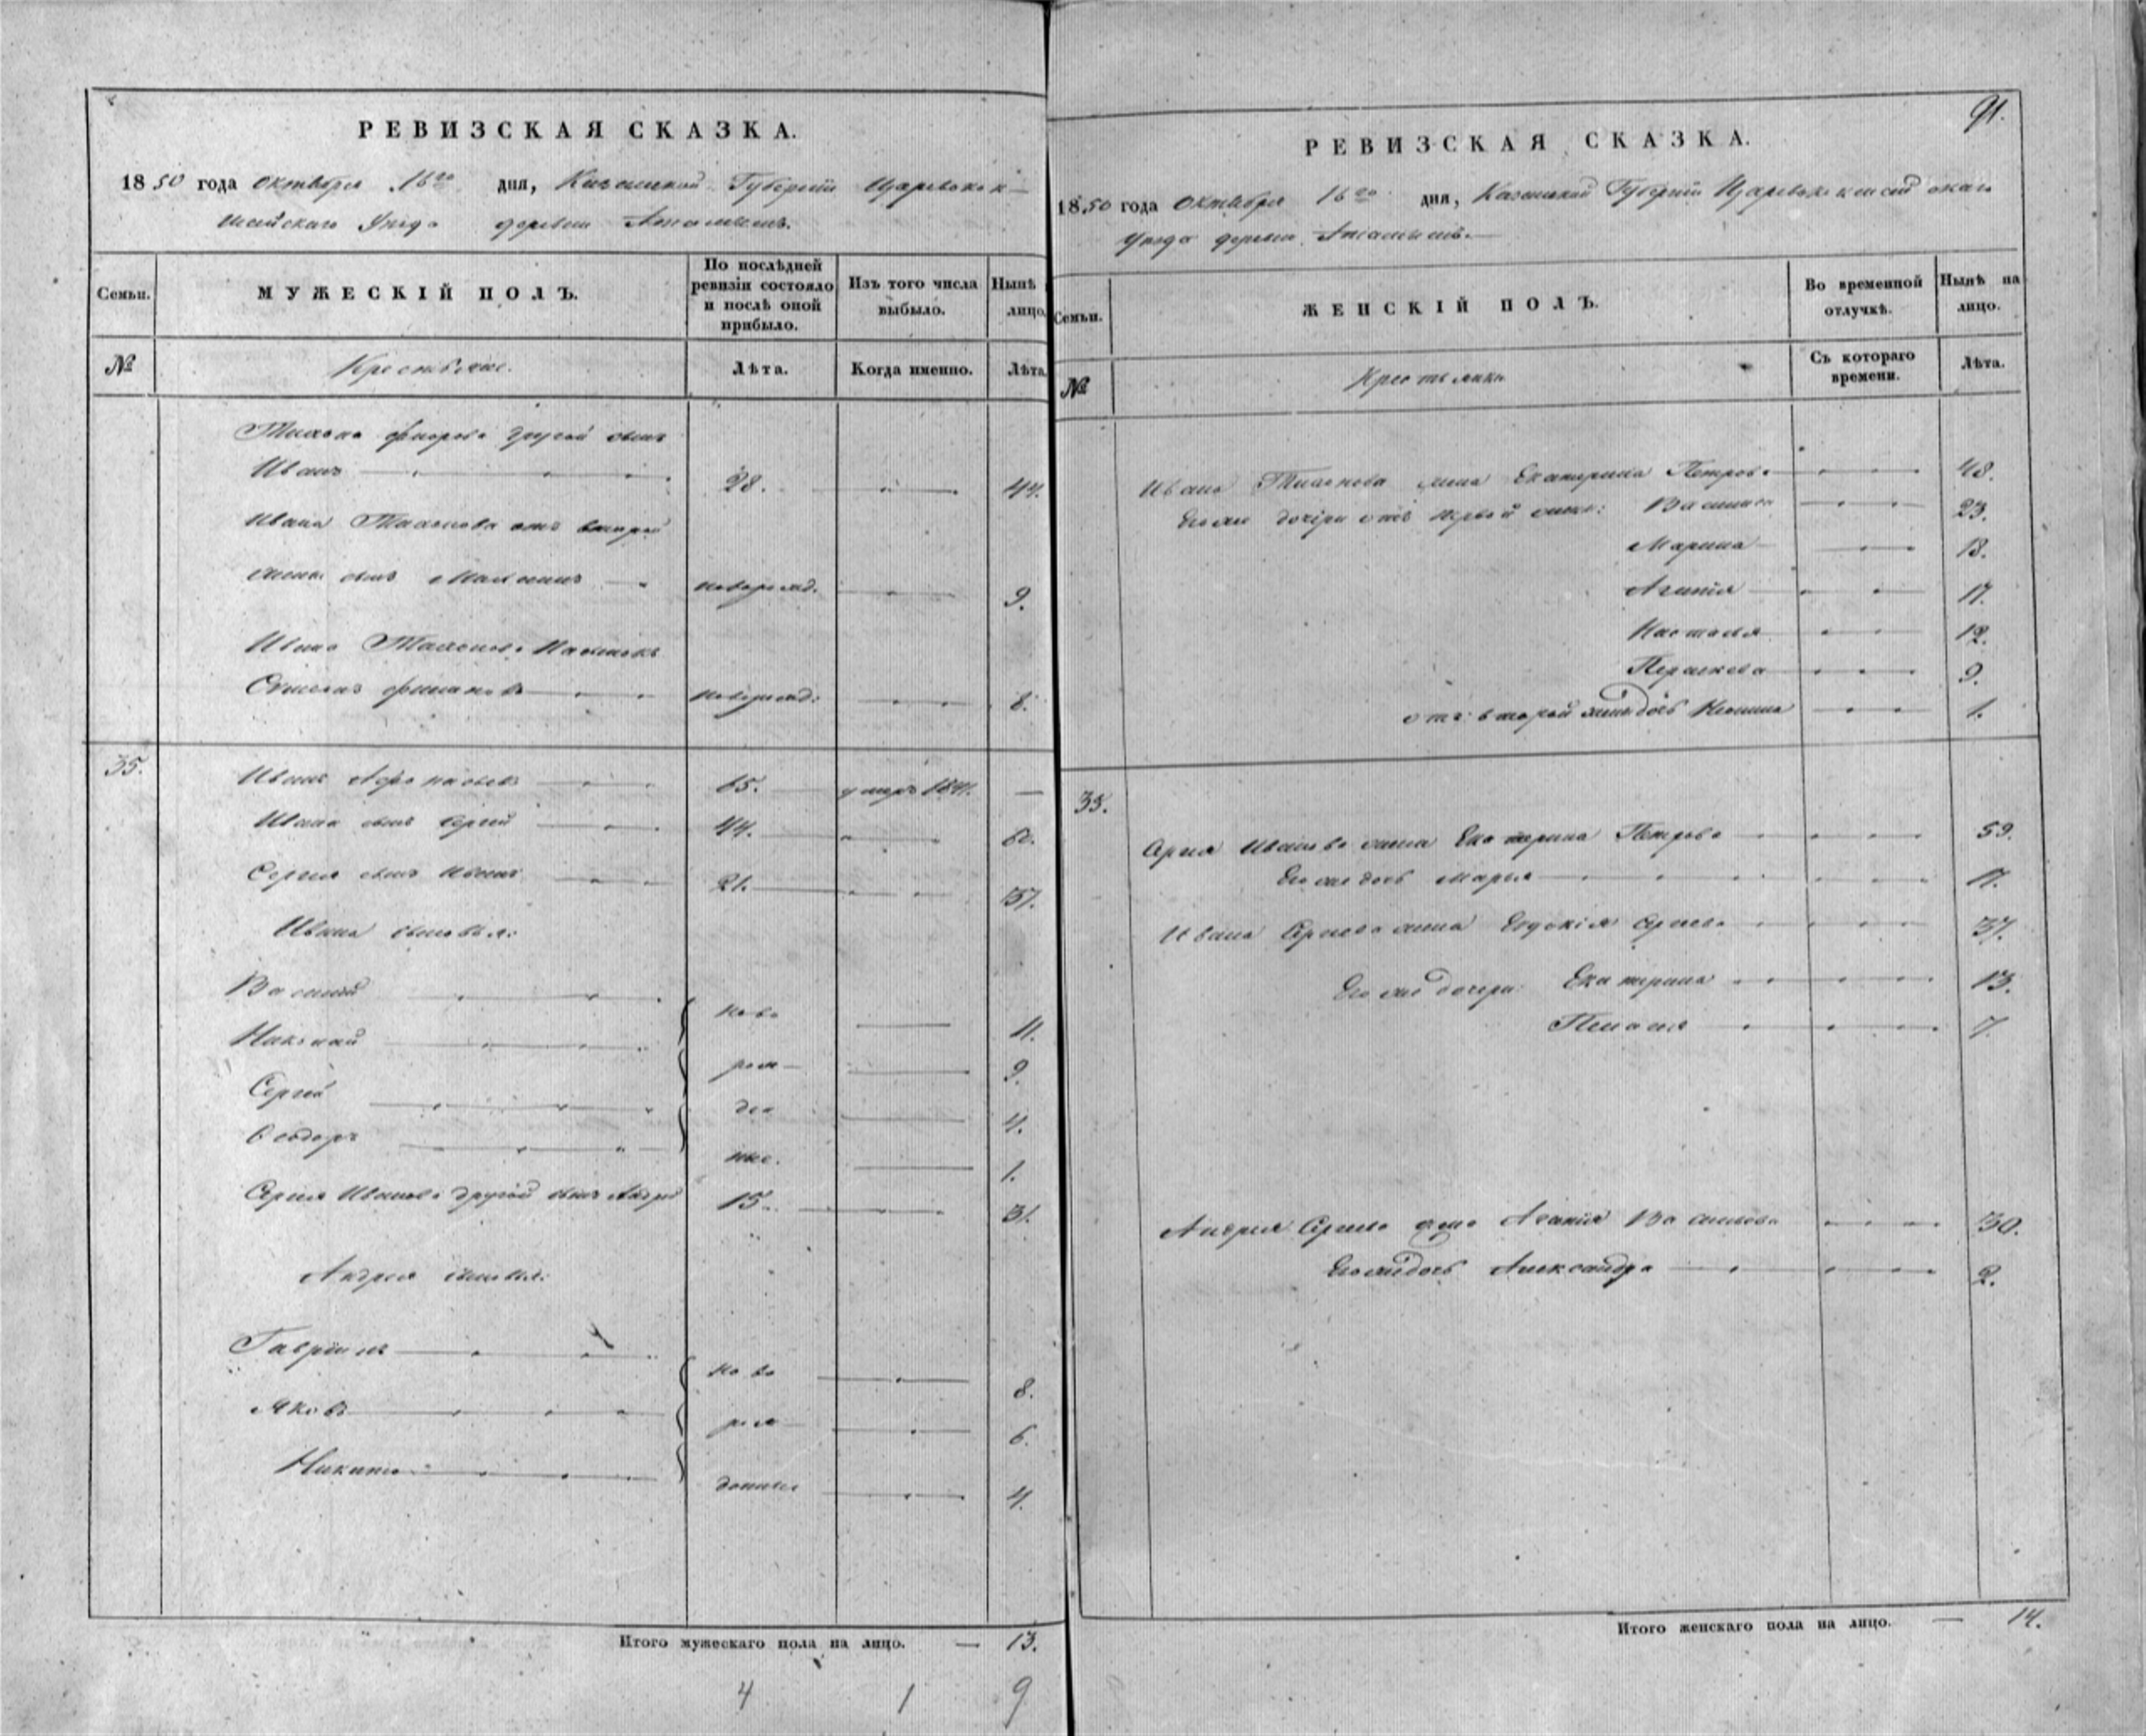 РЕВИЗСКАЯ СКАЗКА.
1850 года Октября 16го дня, Казанской Губернiи Царевококшайскаго Уезда деревни
Семьи.
МУЖЕСКIЙ ПОЛЪ.
По послѣдней ревизiи состояло и послѣ оной прибыло.
Изъ того числа выбыло.
Нынѣ лицо.
№
Крестьяне.
Лѣта.
Когда именно.
Лѣта.
другой сынъ
Иванъ 28. 44.
Ивана Тихонова отъ второй
жены сынъ новорожд. 9.
Ивана Тихонова
новорожд. 8.
35.
Иванъ Афонасьевъ 65. умеръ 1841. —
Ивана сынъ Сергей 44. 60.
Сергея сынъ Иванъ 21. 37.
Ивана сыновья:
Василий ново 11.
Николай рож- 9.
Сергей 4.
Ѳедоръ 1.
Сергея Иванова другой сынъ Андрей 15. 31.
Андрея сыновья:
Гаврiилъ ново 8.
Яковъ рож 6.
Никита 4.
Итого мужескаго пола на лицо. — 13.
4 1 9
91.
РЕВИЗСКАЯ СКАЗКА.
1850 года Октября 16го дня, Казанской Губернiи Царевококшайскаго
Уезда деревни
Семьи.
ЖЕНСКIЙ ПОЛЪ.
Во временной отлучкѣ.
Нынѣ на лицо.
№
Крестьянки
Съ котораго времени.
Лѣта.
Ивана Тихонова жена Екатерина Петрова 48.
Его же дочери отъ первой жены: Василиса 23.
Марина 18.
Агапiя 17.
Настасья 12.
Перасковья 9.
отъ второй жены дочь 1.
35.
Сергея Иванова жена Екатерина Петрова 59.
Его же дочь Марья 17.
Ивана Сергеева жена Евдокiя Сергеева 37.
Его же дочери: Екатерина 13.
Пелагея 7.
Андрея Сергеева жена Агапiя Васильева 30.
Его же дочь Александра 2.
Итого женскаго пола на лицо. — 14.